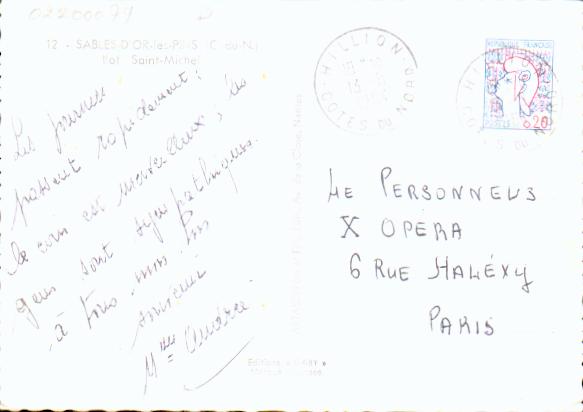 02200079
12 - SABLES-D'OR-les-PINS (C.-du-N.)
Ilot Saint-Michel
Les journées
passent rapidement !
le coin est merveilleux, les
gens sont sympathiques.
à tous mon
Mme Andrée
HILLION
COTES DU NORD
REPUBLIQUE FRANCAISE
POSTES 0,20
LE PERSONNEUS
X OPÉRA
6 RUE HALÉXY
PARIS
Editions « GABY »